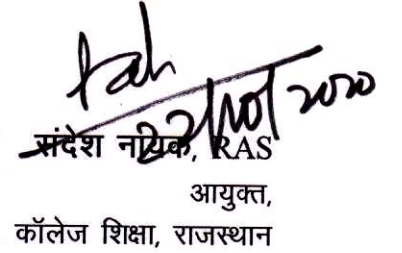 22/10/2020
संदेश नायक, RAS
आयुक्त,
कॉलेज शिक्षा, राजस्थान